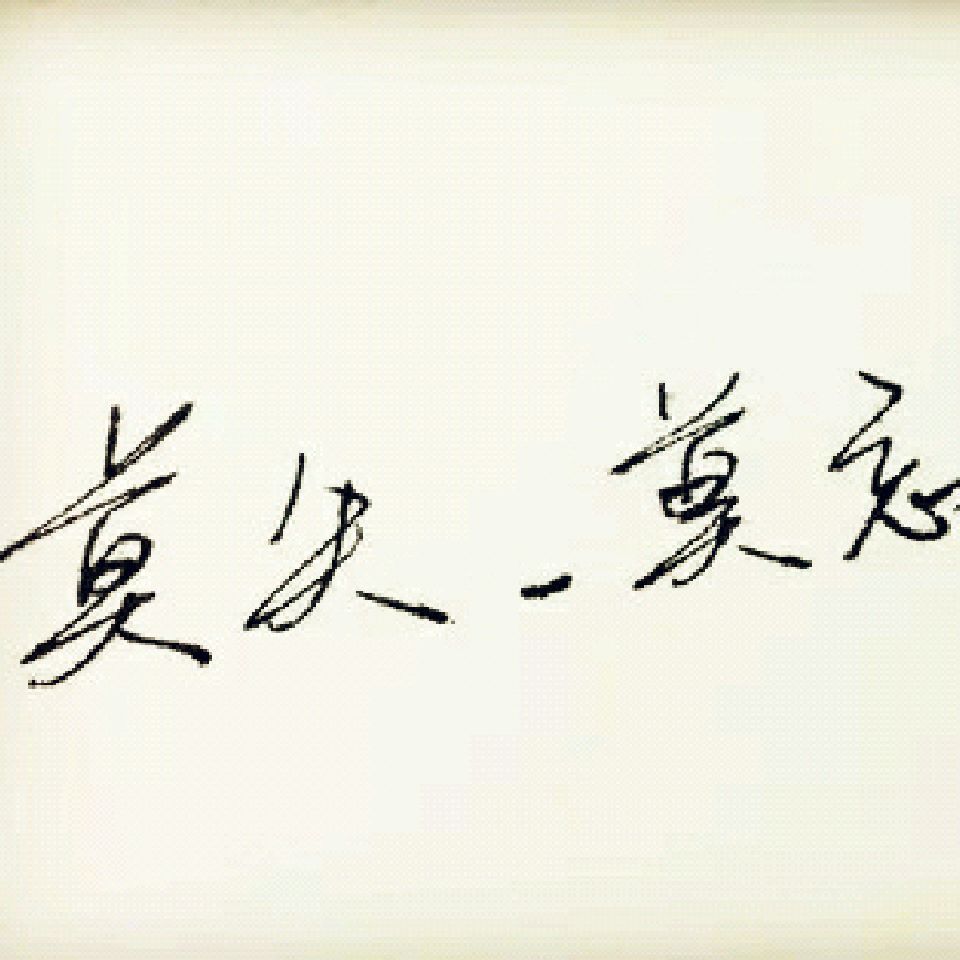 莫失-莫忘